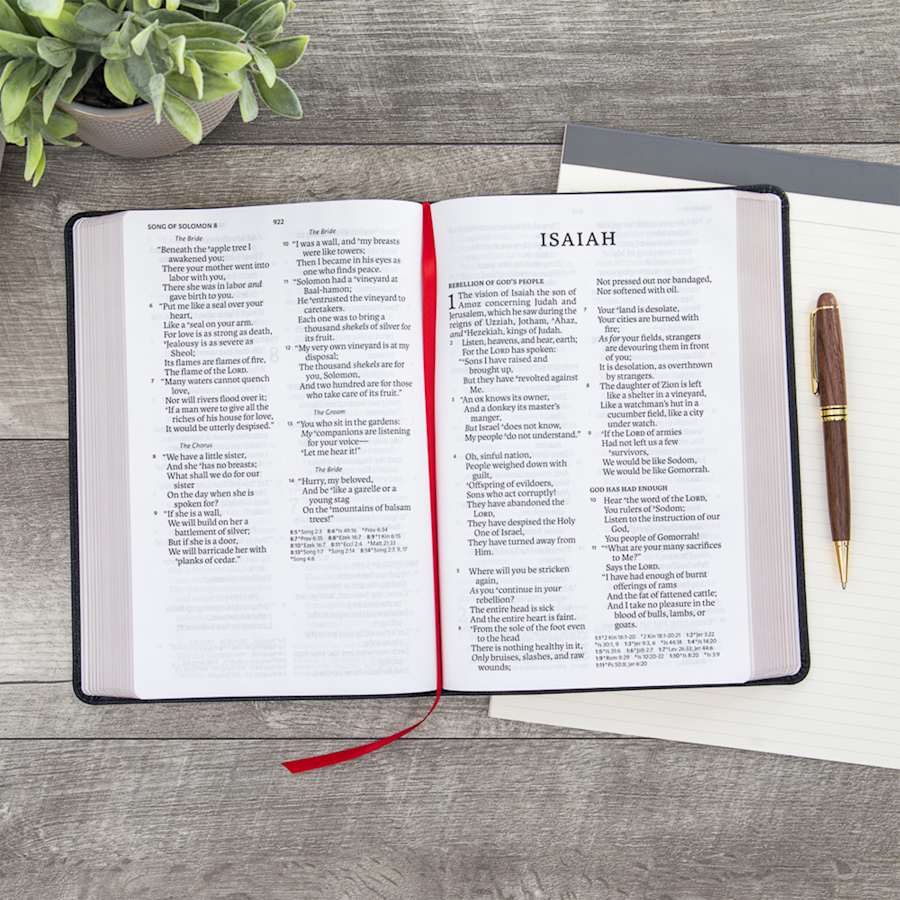 SONG OF SOLOMON 8
922
The Bride
"Beneath the apple tree I
awakened you;
There your mother went into
labor with you,
There she was in labor and
gave birth to you.
6 "Put me like a seal over your
heart,
Like a seal on your arm.
For love is as strong as death,
Jealousy is as severe as
Sheol;
Its flames are flames of fire,
The flame of the LORD.
7 "Many waters cannot quench
love,
Nor will rivers flood over it;
If a man were to give all the
riches of his house for love,
It would be utterly despised."
The Chorus
8 "We have a little sister,
And she has no breasts;
What shall we do for our
sister
On the day when she is
spoken for?
9 "If she is a wall,
We will build on her a
battlement of silver;
But if she is a door,
We will barricade her with
planks of cedar."
The Bride
10 "I was a wall, and my breasts
were like towers;
Then I became in his eyes as
one who finds peace.
11 "Solomon had a vineyard at
Baal-hamon;
He entrusted the vineyard to
caretakers.
Each one was to bring a
thousand shekels of silver for
its fruit.
12 "My very own vineyard is at my
disposal;
The thousand shekels are for
you, Solomon,
And two hundred are for those
who take care of its fruit."
The Groom
13 "You who sit in the gardens:
My companions are listening
for your voice—
Let me hear it!"
The Bride
14 "Hurry, my beloved,
And be like a gazelle or a
young stag
On the mountains of balsam
trees!"
ISAIAH
REBELLION OF GOD'S PEOPLE
1 The vision of Isaiah the son of
Amoz concerning Judah and
Jerusalem, which he saw during the
reigns of Uzziah, Jotham, Ahaz,
and Hezekiah, kings of Judah.
2 Listen, heavens, and hear, earth;
For the LORD has spoken:
"Sons I have raised and
brought up,
But they have revolted against
Me.
3 "An ox knows its owner,
And a donkey its master's
manger,
But Israel does not know,
My people do not understand."
4 Oh, sinful nation,
People weighed down with
guilt,
Offspring of evildoers,
Sons who act corruptly!
They have abandoned the
LORD,
They have despised the Holy
One of Israel,
They have turned away from
Him.
5 Where will you be stricken
again,
As you continue in your
rebellion?
The entire head is sick
And the entire heart is faint.
6 From the sole of the foot even
to the head
There is nothing healthy in it,
Only bruises, slashes, and raw
wounds;
Not pressed out nor bandaged,
Nor softened with oil.
7 Your land is desolate,
Your cities are burned with
fire;
As for your fields, strangers
are devouring them in front
of you;
It is desolation, as overthrown
by strangers.
8 The daughter of Zion is left
like a shelter in a vineyard,
Like a watchman's hut in a
cucumber field, like a city
under watch.
9 If the LORD of armies
Had not left us a few
survivors,
We would be like Sodom,
We would be like Gomorrah.
GOD HAS HAD ENOUGH
10 Hear the word of the LORD,
You rulers of Sodom;
Listen to the instruction of our
God,
You people of Gomorrah!
11 "What are your many sacrifices
to Me?"
Says the LORD.
"I have had enough of burnt
offerings of rams
And the fat of fattened cattle;
And I take no pleasure in the
blood of bulls, lambs, or
goats.